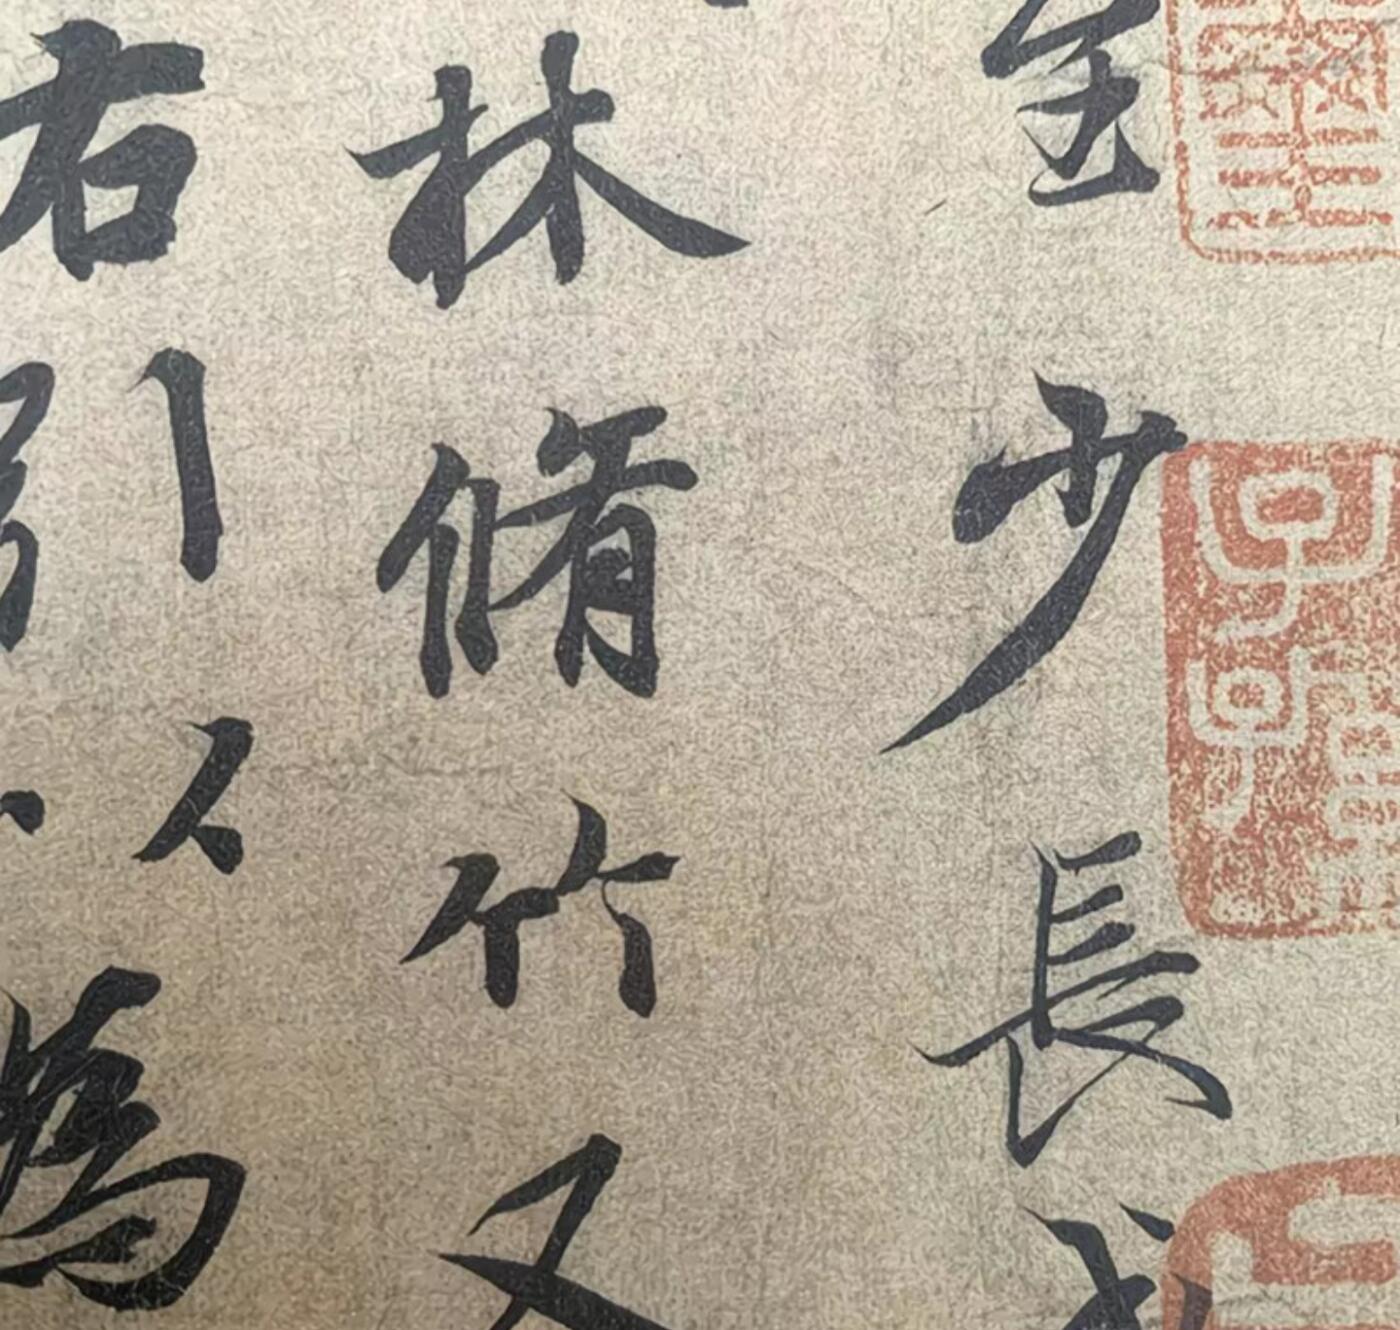 至少長咸
林脩竹又
右引以為